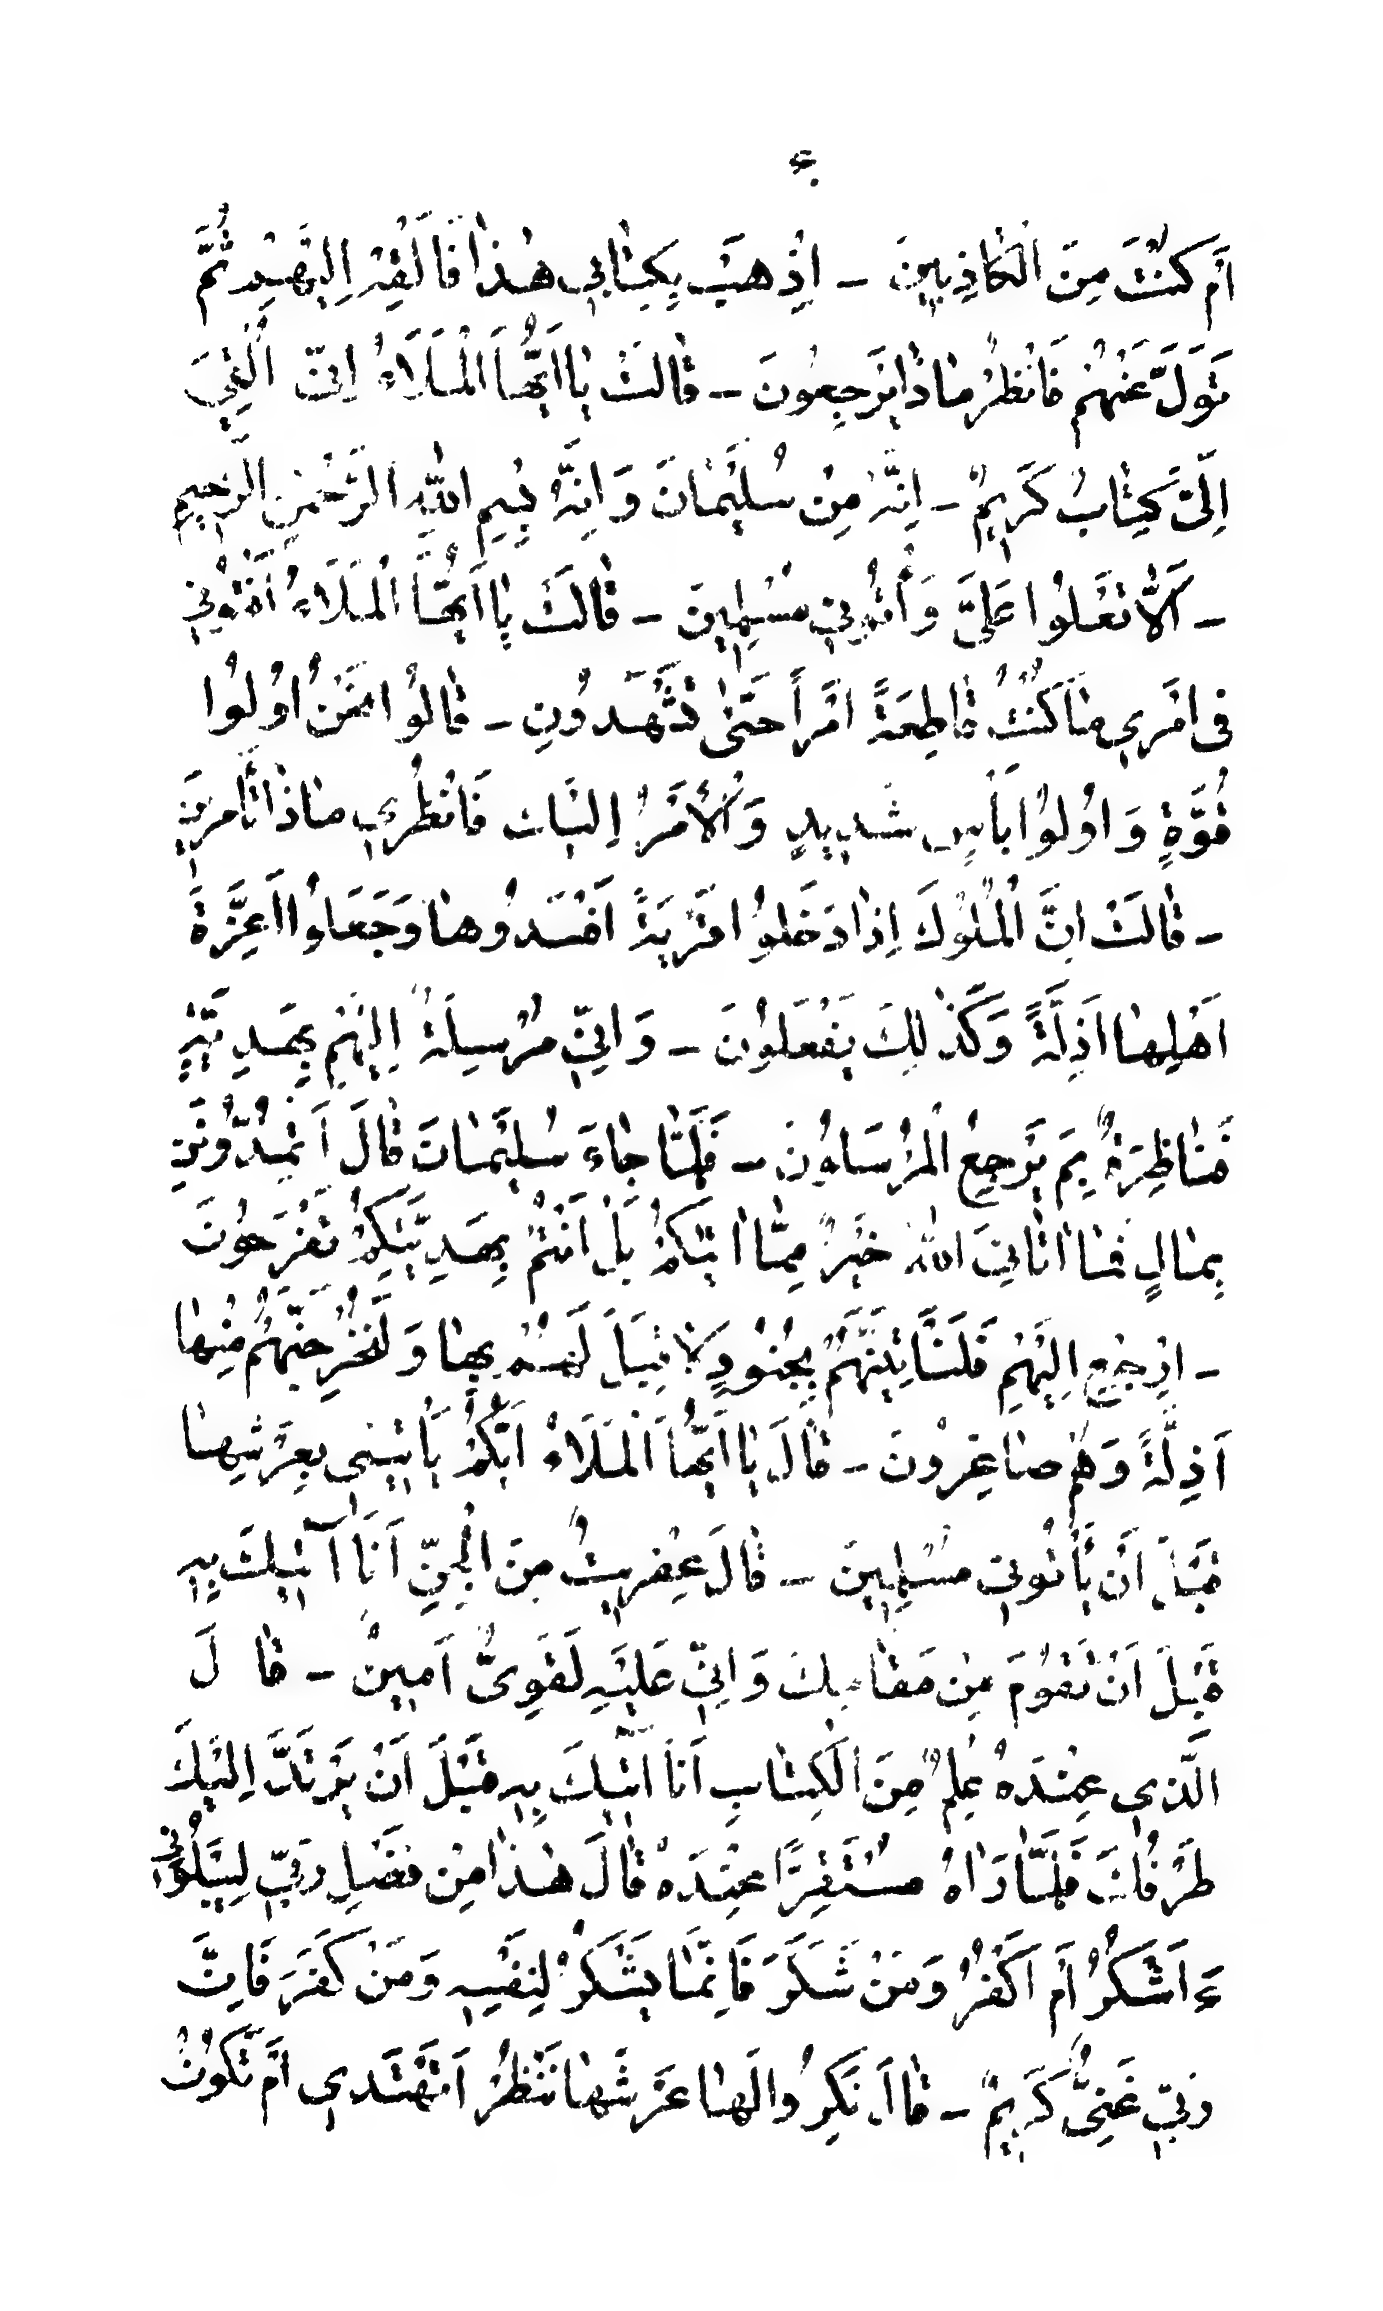 أَمْ كُنْتَ مِنَ الْكَاذِبِينَ - اِذْهَبْ بِكِتَابِي هٰذَا فَالْقِهْ اِلَيْهِمْ ثُمَّ
تَوَلَّ عَنْهُمْ فَانْظُرْ مٰاذَا يَرْجِعُونَ - قٰالَتْ يٰا اَيُّهَا الْمَلَاءُ اِنّي اُلْقِيَ
اِلَيَّ كِتٰابٌ كَرِيمٌ - اِنَّهُ مِنْ سُلَيْمٰانَ وَ اِنَّهُ بِسْمِ اللهِ الرَّحْمٰنِ الرَّحِيمِ
- اَلّٰا تَعْلُوا عَلَيَّ وَأْتُونِي مُسْلِمِينَ - قٰالَتْ يٰا اَيُّهَا الْمَلَاءُ اَفْتُونِي
فِي اَمْرِي مٰا كُنْتُ قٰاطِعَةً اَمْرًا حَتّٰى تَشْهَدُونِ - قٰالُوا نَحْنُ اُولُوا
قُوَّةٍ وَ اُولُوا بَأْسٍ شَدِيدٍ وَالْأَمْرُ اِلَيْكَ فَانْظُرِي مٰاذٰا تَأْمُرِينَ
- قٰالَتْ اِنَّ الْمُلُوكَ اِذٰا دَخَلُوا قَرْيَةً اَفْسَدُوهٰا وَجَعَلُوا اَعِزَّةَ
اَهْلِهٰا اَذِلَّةً وَكَذٰلِكَ يَفْعَلُونَ - وَ اِنّي مُرْسِلَةٌ اِلَيْهِمْ بِهَدِيَّةٍ
فَنٰاظِرَةٌ بِمَ يَرْجِعُ الْمُرْسَلُونَ - فَلَمّٰا جٰاءَ سُلَيْمٰانَ قٰالَ اَتُمِدُّونَنِ
بِمٰالٍ فَمٰا اٰتٰانِيَ اللهُ خَيْرٌ مِمّٰا اٰتٰيكُمْ بَلْ اَنْتُمْ بِهَدِيَّتِكُمْ تَفْرَحُونَ
- اِرْجِعْ اِلَيْهِمْ فَلَنَأْتِيَنَّهُمْ بِجُنُودٍ لٰا قِبَلَ لَهُمْ بِهٰا وَ لَنُخْرِجَنَّهُمْ مِنْهٰا
اَذِلَّةً وَ هُمْ صٰاغِرُونَ - قٰالَ يٰا اَيُّهَا الْمَلَاءُ اَيُّكُمْ يَأْتِينِي بِعَرْشِهٰا
قَبْلَ اَنْ يَأْتُونِي مُسْلِمِينَ - قٰالَ عِفْرِيتٌ مِنَ الْجِنِّ اَنَا آتِيكَ بِهِ
قَبْلَ اَنْ تَقُومَ مِنْ مَقٰامِكَ وَ اِنّي عَلَيْهِ لَقَوِيٌّ اَمِينٌ - قٰالَ
الَّذِي عِنْدَهُ عِلْمٌ مِنَ الْكِتٰابِ اَنَا آتِيكَ بِهِ قَبْلَ اَنْ يَرْتَدَّ اِلَيْكَ
طَرْفُكَ فَلَمّٰا رَاٰهُ مُسْتَقِرًّا عِنْدَهُ قٰالَ هٰذَا مِنْ فَضْلِ رَبّي لِيَبْلُوَنِي
ءَ اَشْكُرُ اَمْ اَكْفُرُ وَ مَنْ شَكَرَ فَاِنَّمٰا يَشْكُرُ لِنَفْسِهِ وَمَنْ كَفَرَ فَاِنَّ
رَبّي غَنِيٌّ كَرِيمٌ - قٰالَ نَكِّرُوا لَهٰا عَرْشَهٰا نَنْظُرْ اَتَهْتَدِي اَمْ تَكُونُ